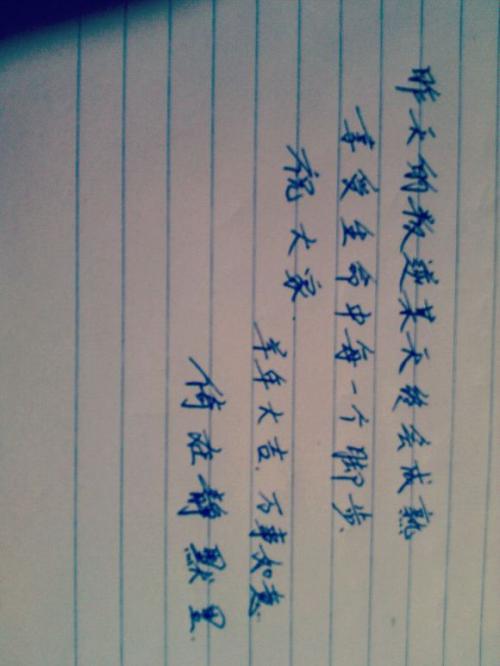 昨天的叛逆某天终会成熟
享受生命中每一个脚步.
祝大家.
羊年大吉.万事如意.
倚在静默里.